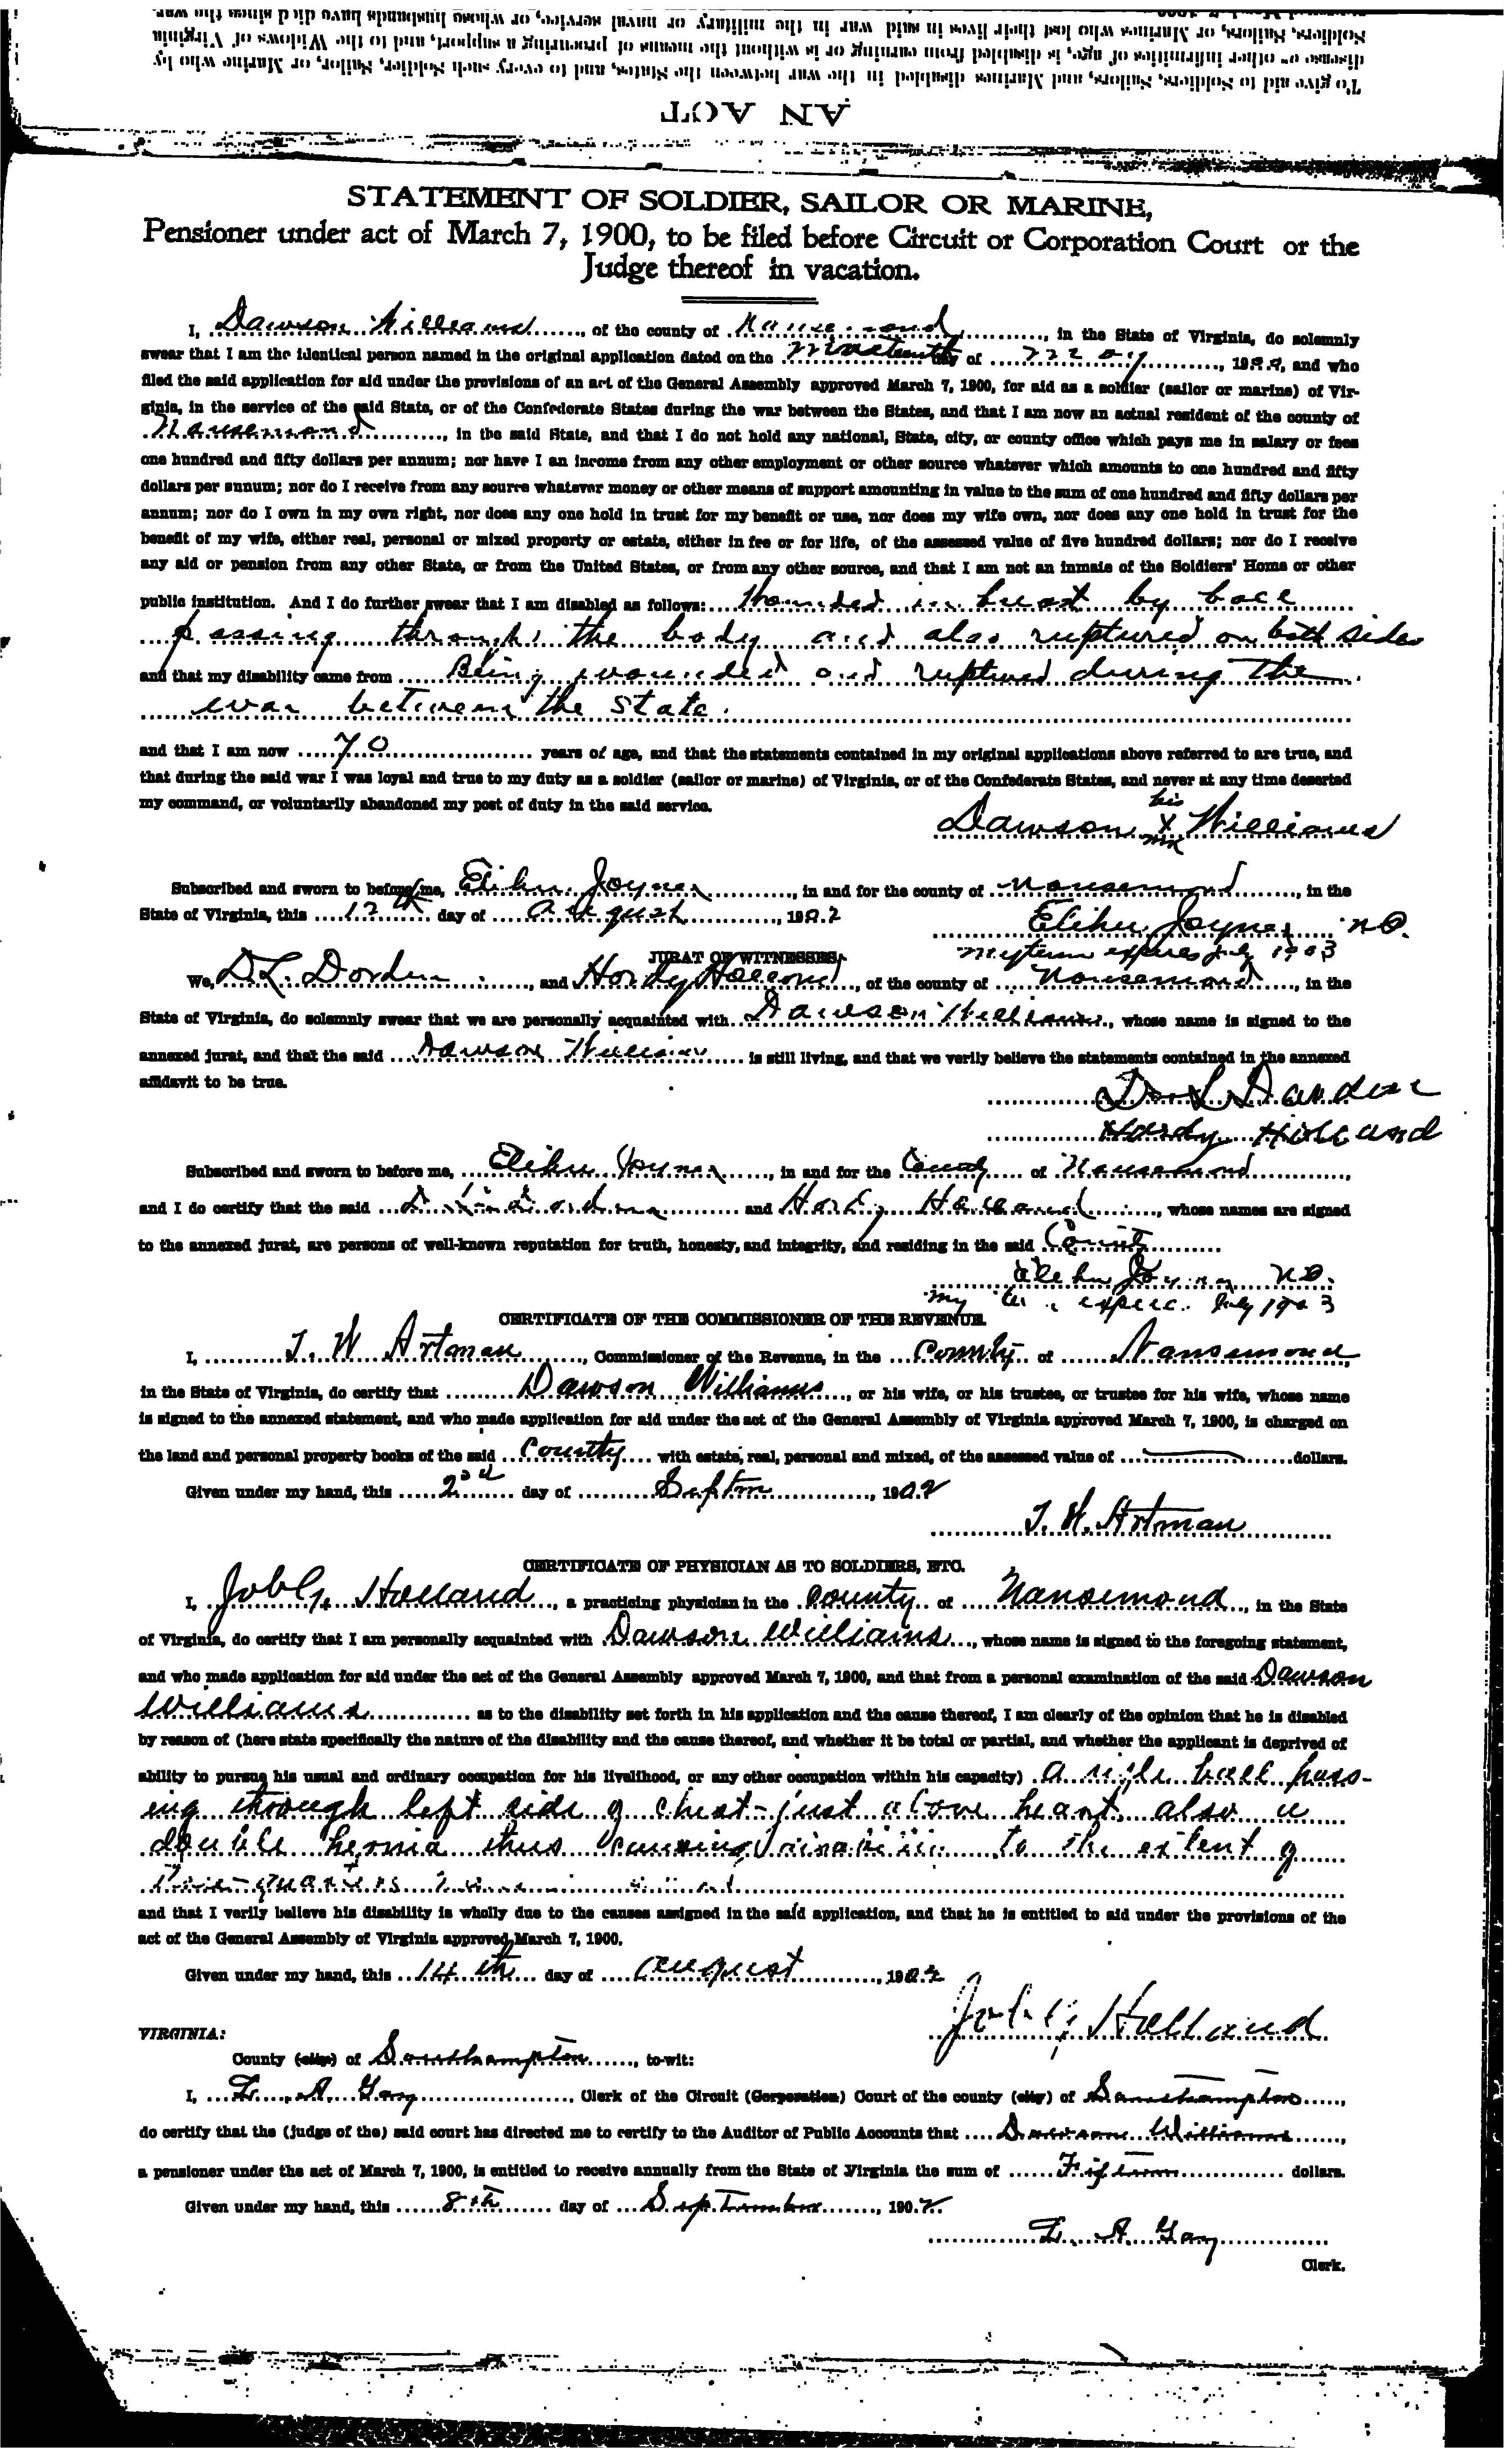 AN ACT
To give aid to Soldiers, Sailors, and Marines disabled in the war between the States, and to every such Soldier, Sailor, or Marine who by
disease or other infirmities of age, is disabled from earning or is without the means of procuring a support, and to the Widows of Virginia
Soldiers, Sailors, or Marines who lost their lives in said war in the military or naval service, or whose husbands have died since the war.
STATEMENT OF SOLDIER, SAILOR OR MARINE,
Pensioner under act of March 7, 1900, to be filed before Circuit or Corporation Court or the
Judge thereof in vacation.
I, Dawson Williams, of the county of Nansemond, in the State of Virginia, do solemnly
swear that I am the identical person named in the original application dated on the nineteenth day of May, 19, and who
filed the said application for aid under the provisions of an act of the General Assembly approved March 7, 1900, for aid as a soldier (sailor or marine) of Vir-
ginia, in the service of the said State, or of the Confederate States during the war between the States, and that I am now an actual resident of the county of
Nansemond, in the said State, and that I do not hold any national, State, city, or county office which pays me in salary or fees
one hundred and fifty dollars per annum; nor have I an income from any other employment or other source whatever which amounts to one hundred and fifty
dollars per annum; nor do I receive from any source whatever money or other means of support amounting in value to the sum of one hundred and fifty dollars per
annum; nor do I own in my own right, nor does any one hold in trust for my benefit or use, nor does my wife own, nor does any one hold in trust for the
benefit of my wife, either real, personal or mixed property or estate, either in fee or for life, of the assessed value of five hundred dollars; nor do I receive
any aid or pension from any other State, or from the United States, or from any other source, and that I am not an inmate of the Soldiers' Home or other
public institution. And I do further swear that I am disabled as follows: Wounded in breast by ball
passing through the body and also ruptured on both sides
and that my disability came from Being wounded and ruptured during the
war between the State.
and that I am now 70 years of age, and that the statements contained in my original applications above referred to are true, and
that during the said war I was loyal and true to my duty as a soldier (sailor or marine) of Virginia, or of the Confederate States, and never at any time deserted
my command, or voluntarily abandoned my post of duty in the said service.
his
Dawson X Williams
mrk
Subscribed and sworn to before me, Elihu Joyner, in and for the county of Nansemond, in the
State of Virginia, this 12th day of August, 1902
Elihu Joyner N.P.
My term expires July 1903
JURAT OF WITNESSES.
We, D. L. Darden, and Hardy Holland, of the county of Nansemond, in the
State of Virginia, do solemnly swear that we are personally acquainted with Dawson Williams, whose name is signed to the
annexed jurat, and that the said Dawson Williams is still living, and that we verily believe the statements contained in the annexed
affidavit to be true.
D. L. Darden
Hardy Holland
Subscribed and sworn to before me, Elihu Joyner, in and for the County of Nansemond,
and I do certify that the said Darden and Hardy Holland, whose names are signed
to the annexed jurat, are persons of well-known reputation for truth, honesty, and integrity, and residing in the said County
Elihu Joyner N.P.
my expires July 1903
CERTIFICATE OF THE COMMISSIONER OF THE REVENUE.
I, T. W. Artman, Commissioner of the Revenue, in the County of Nansemond,
in the State of Virginia, do certify that Dawson Williams, or his wife, or his trustee, or trustee for his wife, whose name
is signed to the annexed statement, and who made application for aid under the act of the General Assembly of Virginia approved March 7, 1900, is charged on
the land and personal property books of the said County with estate, real, personal and mixed, of the assessed value of dollars.
Given under my hand, this 2nd day of Septm, 1902
T. W. Artman
CERTIFICATE OF PHYSICIAN AS TO SOLDIERS, ETC.
I, Job G. Holland, a practicing physician in the County of Nansemond, in the State
of Virginia, do certify that I am personally acquainted with Dawson Williams, whose name is signed to the foregoing statement,
and who made application for aid under the act of the General Assembly approved March 7, 1900, and that from a personal examination of the said Dawson
Williams as to the disability set forth in his application and the cause thereof, I am clearly of the opinion that he is disabled
by reason of (here state specifically the nature of the disability and the cause thereof, and whether it be total or partial, and whether the applicant is deprived of
ability to pursue his usual and ordinary occupation for his livelihood, or any other occupation within his capacity) a rifle ball pass-
ing through left side of chest - just above heart, also a
double hernia thus causing to the extent of
and that I verily believe his disability is wholly due to the causes assigned in the said application, and that he is entitled to aid under the provisions of the
act of the General Assembly of Virginia approved March 7, 1900.
Given under my hand, this 14th day of August, 1902
Job G. Holland
VIRGINIA:
County (city) of Southampton, to-wit:
I, L. A. Gay, Clerk of the Circuit (Corporation) Court of the county (city) of Southampton,
do certify that the (judge of the) said court has directed me to certify to the Auditor of Public Accounts that Dawson Williams,
a pensioner under the act of March 7, 1900, is entitled to receive annually from the State of Virginia the sum of Fifteen dollars.
Given under my hand, this 8th day of September, 1902
L. A. Gay
Clerk.